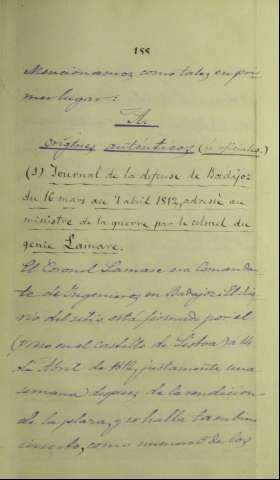 188
Mencionamos como tales en pri
mer lugar:
A.
orígenes auténticos (ú oficiales.)
(1) Journal de la défense de Badajoz
du 16 mars au 7 abril 1812, adresié au
ministre de la guerre par le colonel du
genie Lamare.
El Coronel Lamare era Comandan
te de Ingenieros en Badajoz. El dia
rio del sitio está firmado por el
(preso en el castillo de Lisboa) a 14
de Abril de 1812, justamente una
semana despues de la rendicion
de la plaza, y se halla tambien
como numero de los